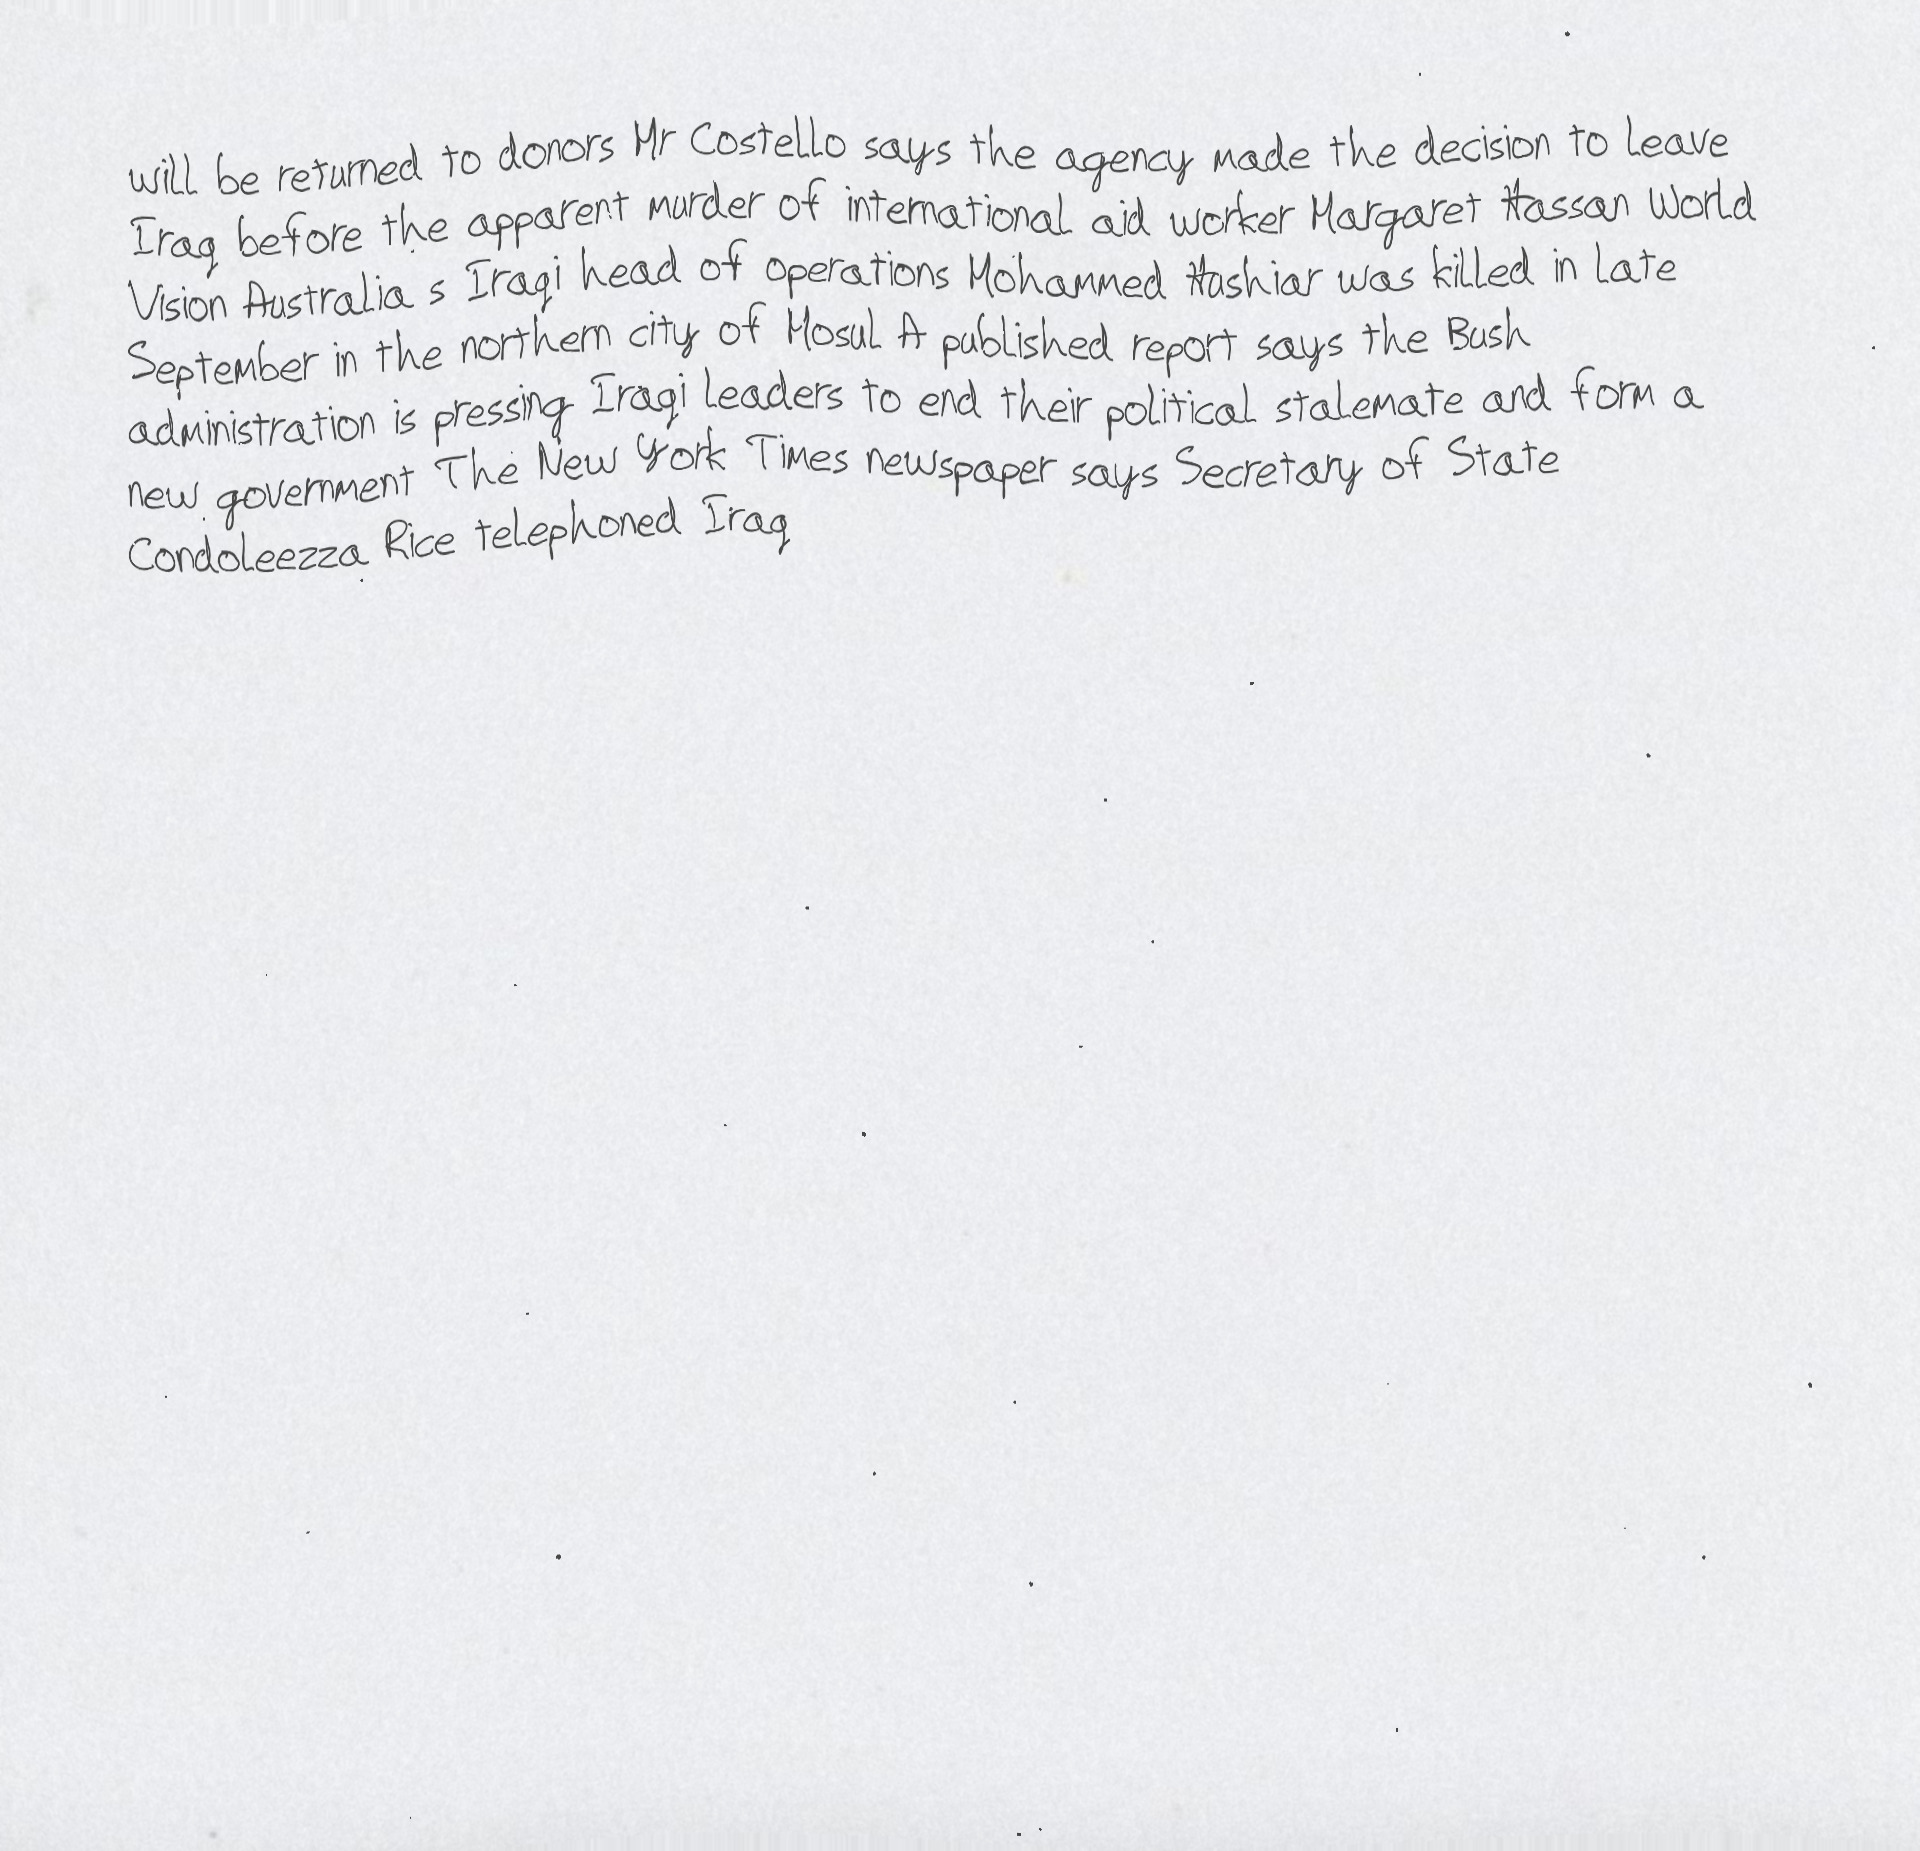 will be returned to donors Mr Costello says the agency made the decision to leave
Iraq before the apparent murder of international aid worker Margaret Hassan World
Vision Australia s Iraqi head of operations Mohammed Hushiar was killed in late
September in the northern city of Mosul A published report says the Bush
administration is pressing Iraqi leaders to end their political stalemate and form a
new government The New York Times newspaper says Secretary of State
Condoleezza Rice telephoned Iraq